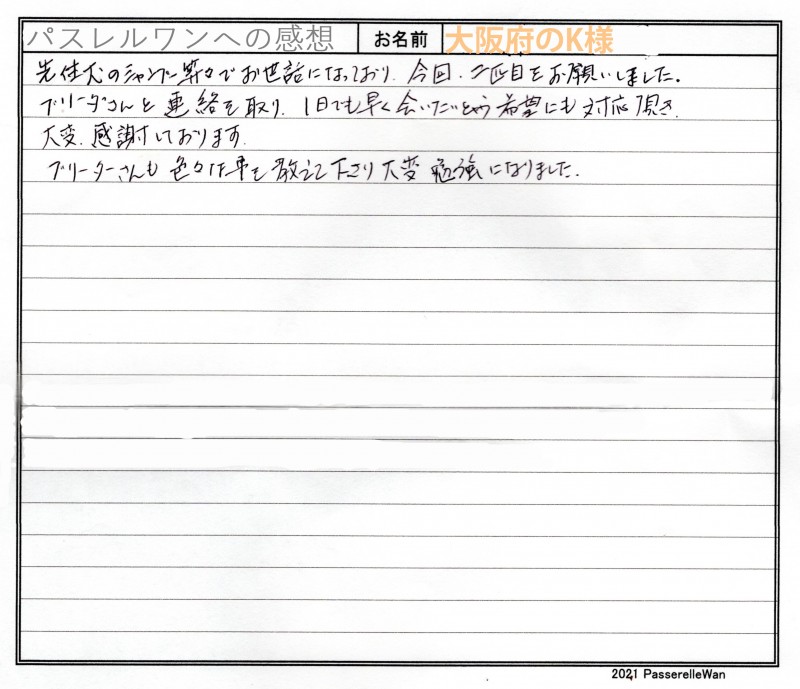 パスレルワンへの感想 お名前 大阪府のK様
先住犬のシャンプー等々でお世話になっており、今回、二匹目をお願いしました。
ブリーダーさんと連絡を取り、1日でも早く会いたいという希望にも対応頂き、
大変、感謝しております。
ブリーターさんも色々な事を教えて下さり大変勉強になりました。
2021 PasserelleWan